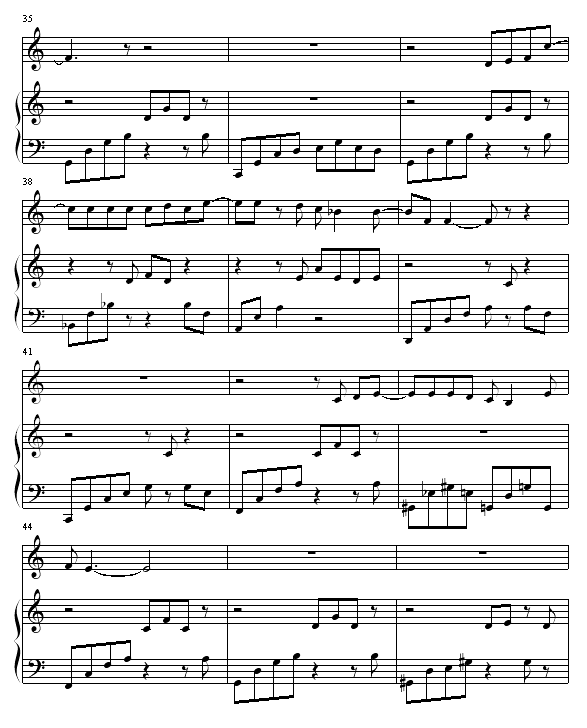 35
38
41
44